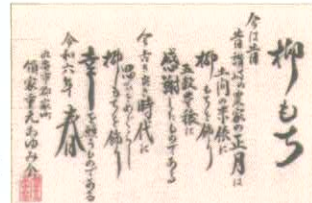 柳もち
今は昔
昔讃岐の農家の正月は
土間の米俵に
柳もちを飾り
五穀豊穣に
感謝したものである
今古き良き時代に
思いをめぐらし
柳もちを飾り
幸を願うものである
令和六年 春
領家重元あゆみ会